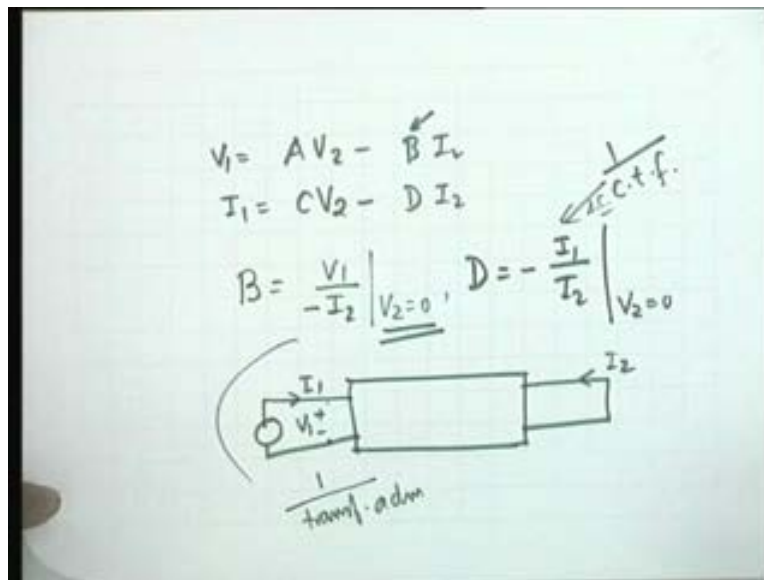 V₁ = A V₂ - B I₂
I₁ = C V₂ - D I₂
1 / s.c. c.t.f.
B = V₁ / -I₂ | V₂=0 , D = - I₁ / I₂ | V₂=0
I₁ I₂
V₁ + -
1 / transf. adm